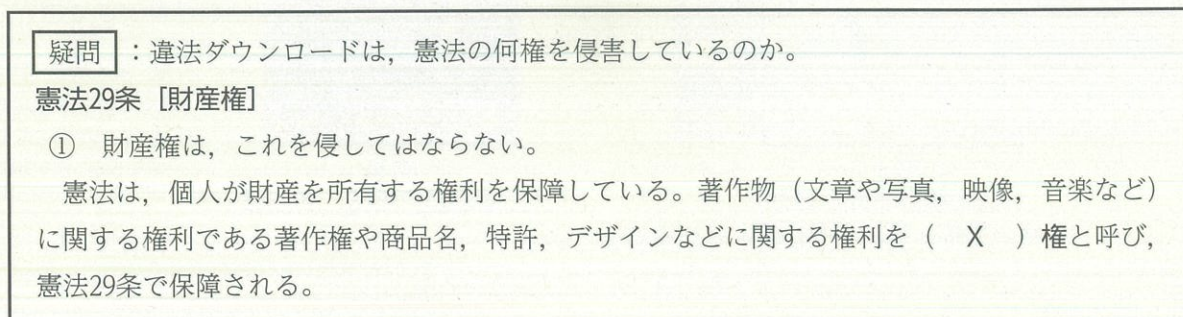 疑問：違法ダウンロードは，憲法の何権を侵害しているのか。
憲法29条［財産権］
①　財産権は，これを侵してはならない。
憲法は，個人が財産を所有する権利を保障している。著作物（文章や写真，映像，音楽など）
に関する権利である著作権や商品名，特許，デザインなどに関する権利を（　X　）権と呼び，
憲法29条で保障される。